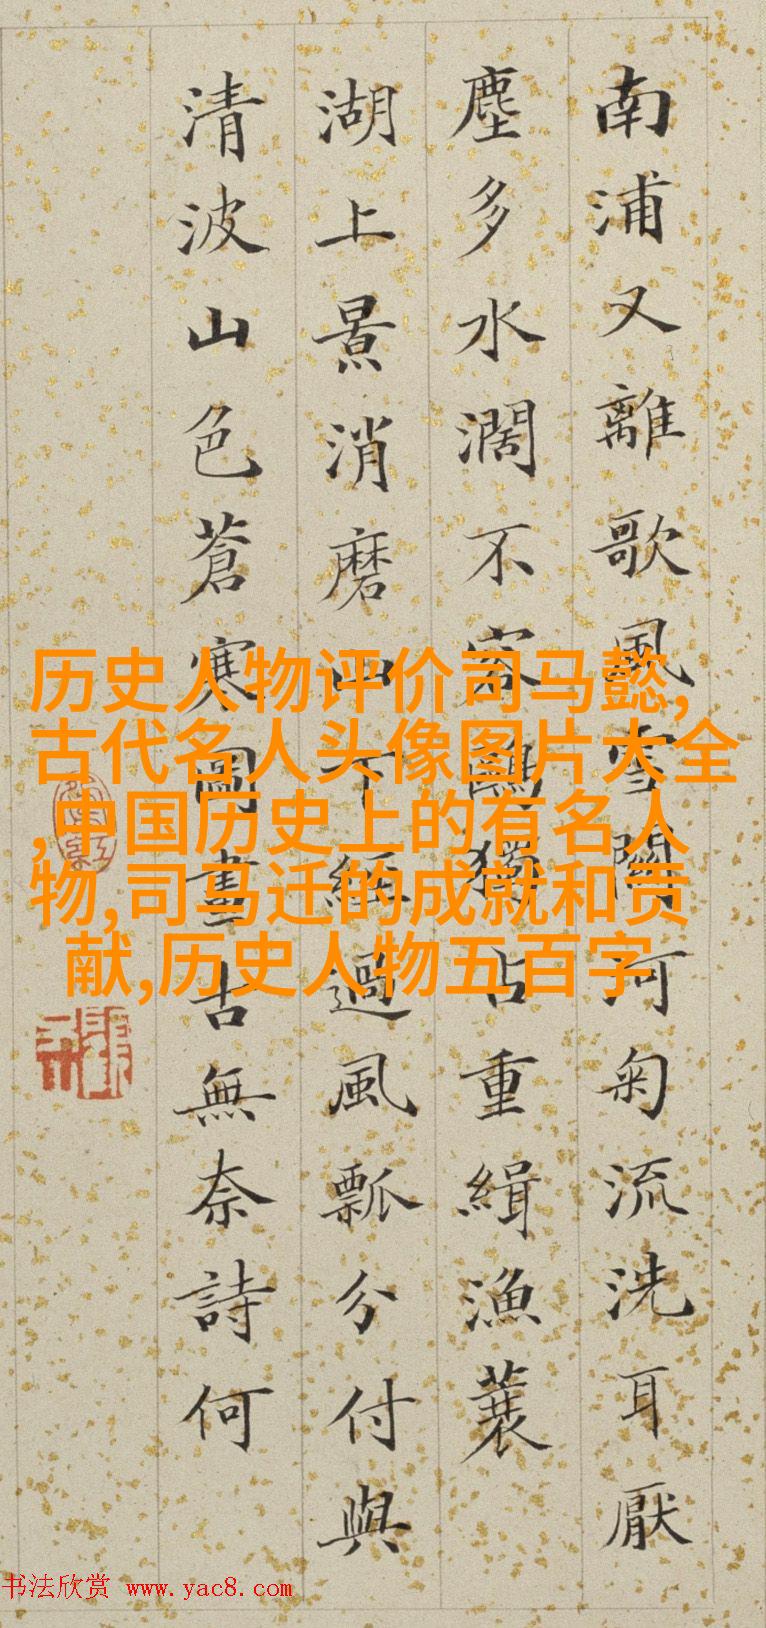 南浦又離歌風雪闗河匊流洗耳厭
塵多水濶不容鷗獨占重緝漁蓑
湖上景消磨山下經過風瓢分付與
清波山色蒼寒圖畫古無奈詩何
历史人物评价司马懿,
古代名人头像图片大全
,中国历史上的有名人
物,司马迁的成就和贡
献,历史人物五百字
书法欣赏 www.yac8.com